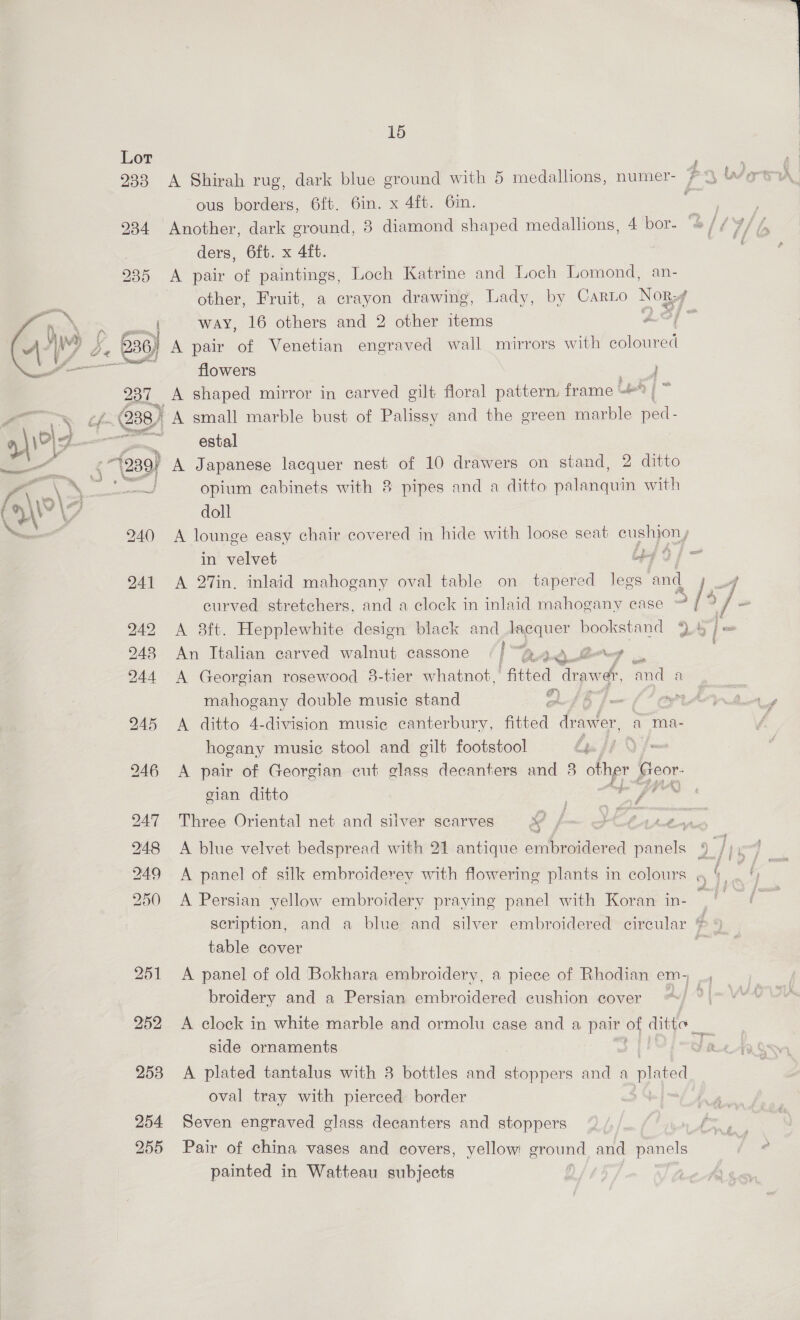 15
Lot
233 A Shirah rug, dark blue ground with 5 medallions, numer-
ous borders, 6ft. 6in. x 4ft. 6in.
234 Another, dark ground, 3 diamond shaped medallions, 4 bor-
ders, 6ft. x 4ft.
235 A pair of paintings, Loch Katrine and Loch Lomond, an-
other, Fruit, a crayon drawing, Lady, by Carlo Nory
way, 16 others and 2 other items
236 A pair of Venetian engraved wall mirrors with coloured
flowers
237 A shaped mirror in carved gilt floral pattern frame
238 A small marble bust of Palissy and the green marble ped-
estal
239 A Japanese lacquer nest of 10 drawers on stand, 2 ditto
opium cabinets with 3 pipes and a ditto palanquin with
doll
240 A lounge easy chair covered in hide with loose seat cushion,
in velvet
241 A 27in. inlaid mahogany oval table on tapered legs and
curved stretchers, and a clock in inlaid mahogany case
242 A 3ft. Hepplewhite design black and lacquer bookstand
243 An Italian carved walnut cassone
244 A Georgian rosewood 3-tier whatnot, fitted drawer, and a
mahogany double music stand
245 A ditto 4-division music canterbury, fitted drawer, a ma-
hogany music stool and gilt footstool
246 A pair of Georgian cut glass decanters and 3 other Geor-
gian ditto
247 Three Oriental net and silver scarves
248 A blue velvet bedspread with 21 antique embroidered panels
249 A panel of silk embroiderey with flowering plants in colours
250 A Persian yellow embroidery praying panel with Koran in-
scription, and a blue and silver embroidered circular
table cover
251 A panel of old Bokhara embroidery, a piece of Rhodian em-
broidery and a Persian embroidered cushion cover
252 A clock in white marble and ormolu case and a pair of ditto
side ornaments
253 A plated tantalus with 3 bottles and stoppers and a plated
oval tray with pierced border
254 Seven engraved glass decanters and stoppers
255 Pair of china vases and covers, yellow ground and panels
painted in Watteau subjects